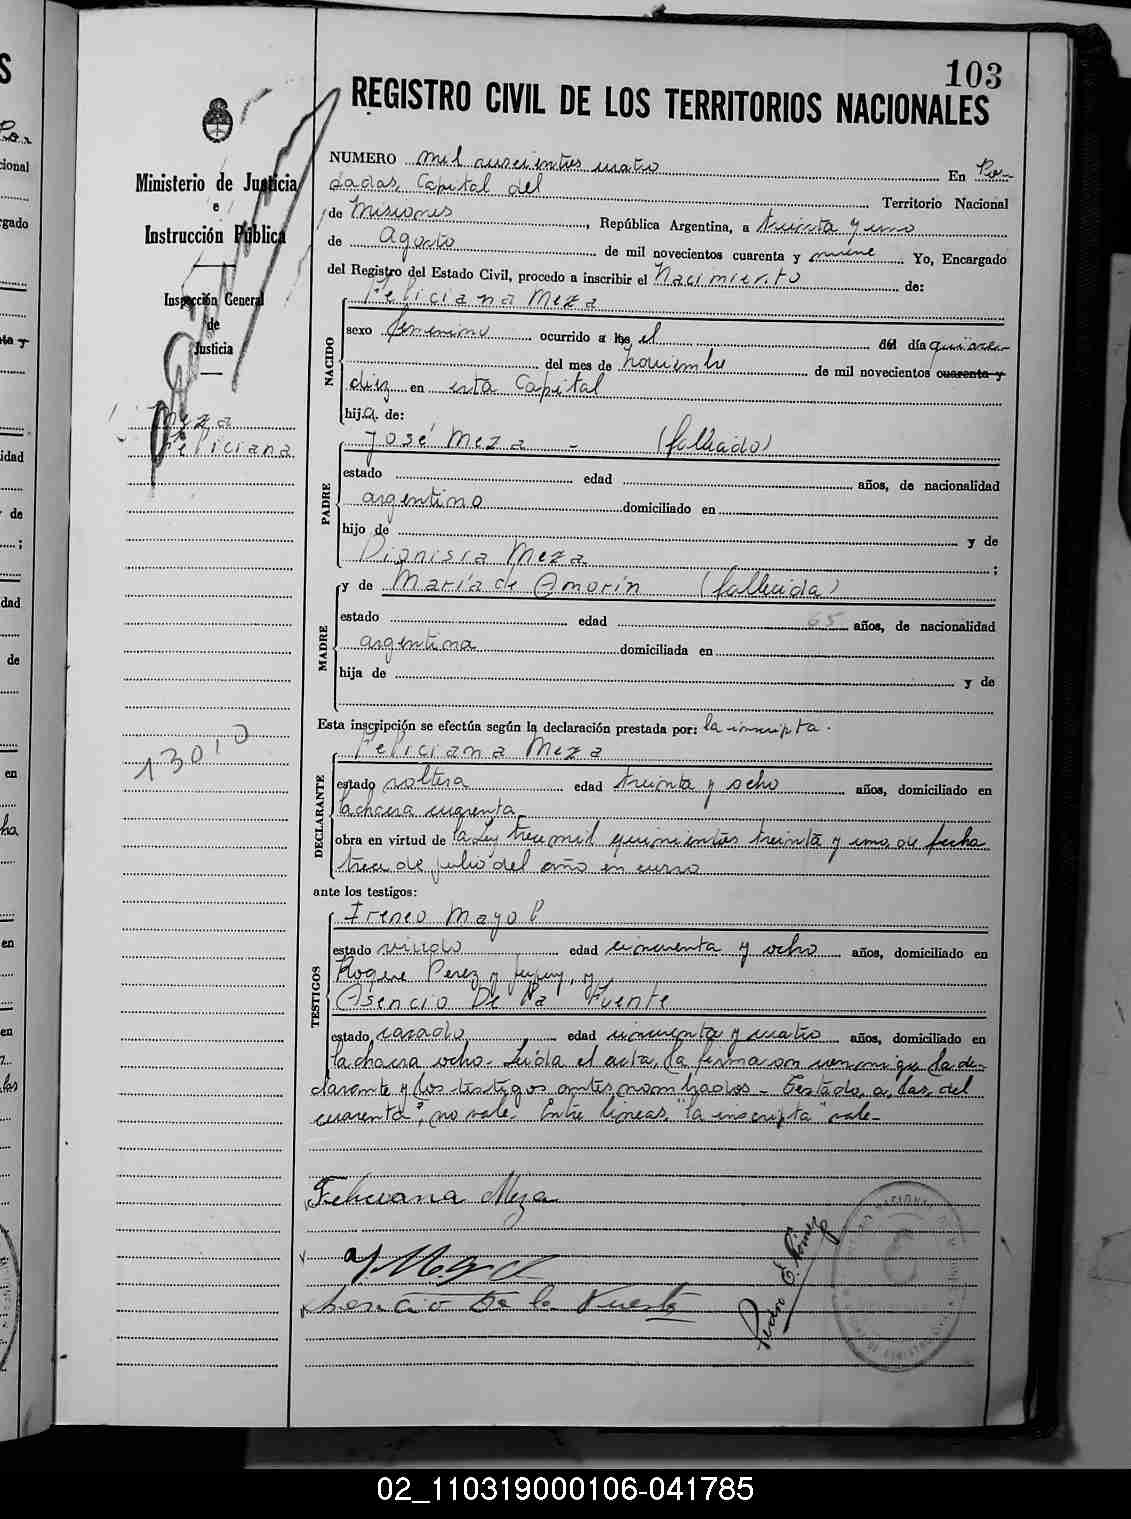 103
REGISTRO CIVIL DE LOS TERRITORIOS NACIONALES
Ministerio de Justicia
e
Instrucción Pública
Inspección General
de
Justicia
Meza
Feliciana
13010
NUMERO mil cuatro En Po-
sadas, Capital del Territorio Nacional
de Misiones, República Argentina, a treinta y uno
de Agosto de mil novecientos cuarenta y nueve Yo, Encargado
del Registro del Estado Civil, procedo a inscribir el Nacimiento de:
NACIDO
Feliciana Meza
sexo femenino ocurrido a las el del día quince
del mes de noviembre de mil novecientos cuarenta y
diez en esta Capital
hija de:
PADRE
José Meza - (fallecido)
estado edad años, de nacionalidad
argentino domiciliado en
hijo de y de
Dionisia Meza ;
MADRE
y de María de Amorín (fallecida)
estado edad 65 años, de nacionalidad
argentina domiciliada en
hija de y de
Esta inscripción se efectúa según la declaración prestada por: la inscripta.
DECLARANTE
Feliciana Meza
estado soltera edad treinta y ocho años, domiciliado en
la chacra cuarenta
obra en virtud de la Ley trece mil quinientos treinta y uno de fecha
trece de julio del año en curso
ante los testigos:
TESTIGOS
Ireneo Mayol
estado viudo edad cincuenta y ocho años, domiciliado en
Roque Perez y Jujuy, y
Asencio De la Fuente
estado casado edad cincuenta y cuatro años, domiciliado en
la chacra ocho - Leída el acta, la firmaron conmigo la de-
clarante y los testigos antes nombrados - Testado, a, las, del
cuarenta", no vale. Entre lineas, "la inscripta" vale-
Feliciana Meza
Asencio De la Fuente
Pedro E. Gómez
02_110319000106-041785